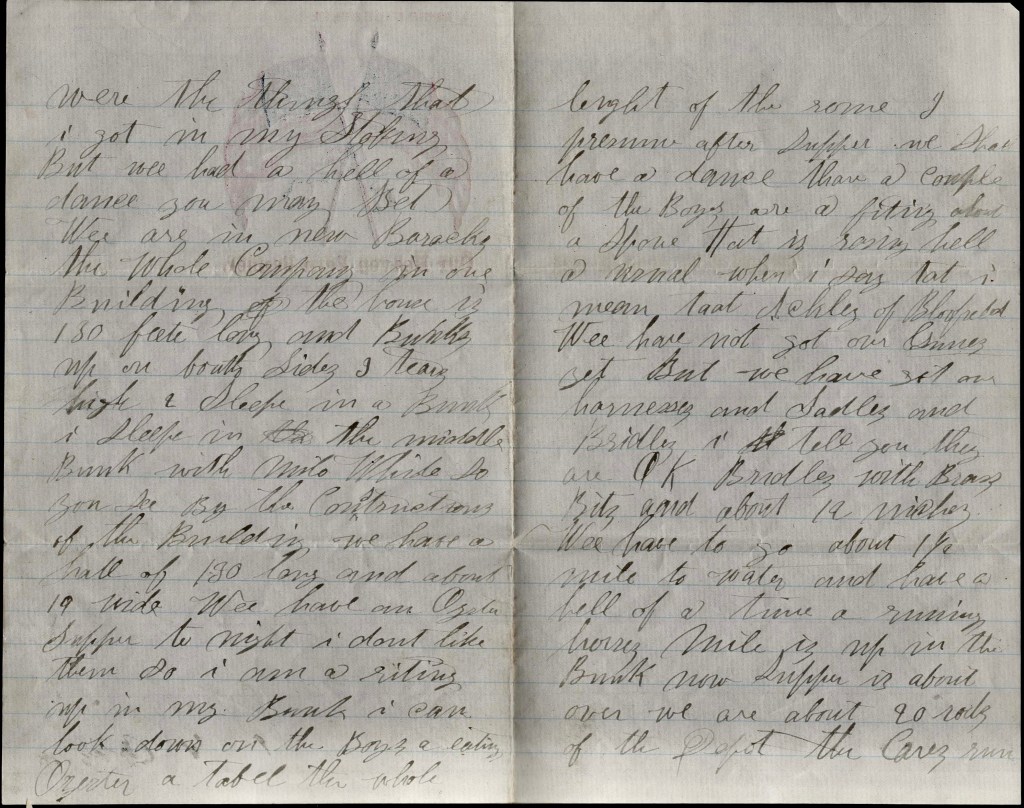 were the things that
i got in my Stokins
But wee had a hell of a
dance you may Bet
Wee are in new Baracks
the Whole Company in one
Building the house is
130 feete long and Bunks
up on bouth Sides 3 tears
high 2 Sleepe in a Bunk
i Sleepe in the middle
Bunk with Milo White So
you See By the Contructions
of the Building we have a
hall of 130 long and about
19 wide Wee have an Oyster
Supper to night i dont like
them So i am a riting
up in my Bunk i can
look down on the Boys a eating
Oyester a tabel the whole
lenght of the rome I
presume after Supper we Shal
have a dance thare a Couple
of the Boys are a fiting about
a Spone that is rasing hell
a usual when i say tat i
mean taat Ackley of
Wee have not got our Gunes
yet But we have got our
harnesses and Sadles and
Bridles i tell you they
are O K Bridles with Brass
Bits and about 12
Wee have to go about 1 1/2
mile to water and have a
hell of a time a runing
horses Mile is up in the
Bunk now Supper is about
over we are about 20 rods
of the Depot the Cares run